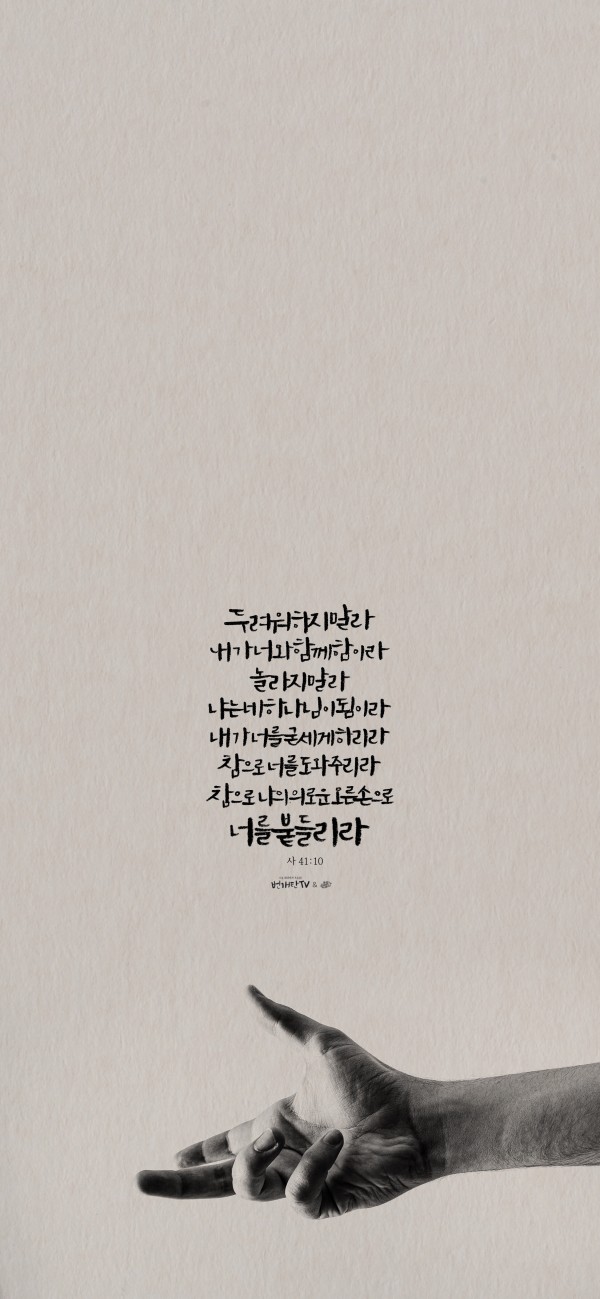 두려워하지말라
내가너와함께함이라
놀라지말라
나는네하나님이됨이라
내가너를굳세게하리라
참으로너를도와주리라
참으로나의의로운오른손으로
너를붙들리라
사 41:10
번개탄TV &